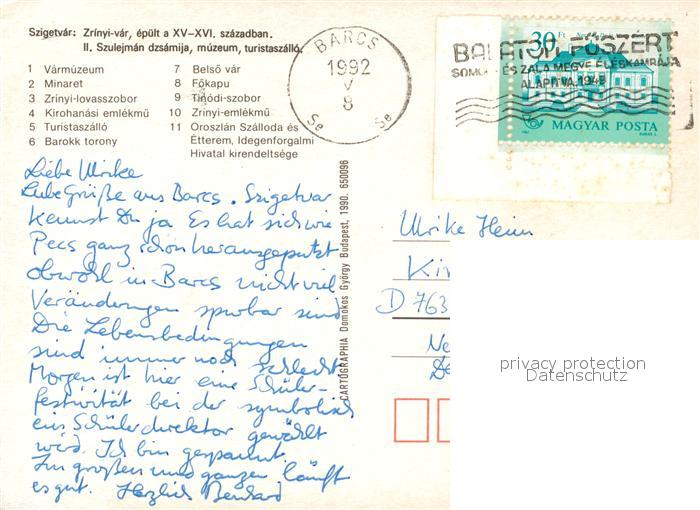 Szigetvár: Zrínyi-vár, épült a XV-XVI. században.
II. Szulejmán dzsámija, múzeum, turistaszálló.
1 Vármúzeum
2 Minaret
3 Zrínyi-lovasszobor
4 Kirohanási emlékmű
5 Turistaszálló
6 Barokk torony
7 Belső vár
8 Főkapu
9 Tinódi-szobor
10 Zrínyi-emlékmű
11 Oroszlán Szálloda és
Étterem, Idegenforgalmi
Hivatal kirendeltsége
BARCS
1992
V
8
Se Se
BALATON FÜSZÉRT
SOMOGY ÉS ZALA MEGYE ÉLÉSKAMRÁJA
ALAPÍTVA 1949
30 Ft
MAGYAR POSTA
Liebe Ulrike
Liebe Grüße aus Barcs. Szigetvar
kennst Du ja Es hat sich wie
Pecs ganz schön herausgeputzt
obwohl in Barcs nicht viel
Veränderungen spürbar sind
Die Lebensbedingungen
sind immer noch schlecht
Morgen ist hier eine Schüler-
festivität bei der symbolisch
ein Schülerdirektor gewählt
wird. Ich bin gespannt.
Im großen und ganzen läuft
es gut. Herzlich Bernhard
CARTOGRAPHIA Domokos György Budapest, 1990. 650096
Ulrike Heim
Kir
D 763
Ne
De
privacy protection
Datenschutz